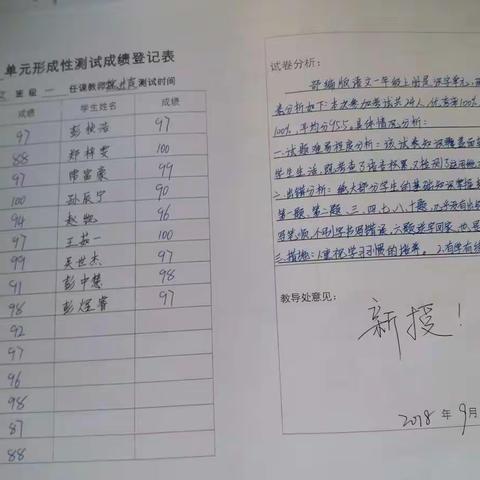 单元形成性测试成绩登记表
班级 一 任课教师 测试时间
成绩 学生姓名 成绩
97 彭梓浩 97
88 郑梓雯 100
97 富豪 99
100 孙辰宁 90
94 赵 96
97 王茹一 100
99 吴世杰 97
91 彭中慧 98
98 彭煜睿 97
92
97
96
98
87
88
试卷分析：
部编版语文一年级上册是汉字单元，
卷分析如下：本次参加考试共24人，优秀率100%
100%，平均分95.5，具体情况分析：
一．试题难易程度分析：该试卷知识覆盖面
学生生活，既考查了语言积累，又检测了应用
二．出错分析：绝大部分学生的基础知识掌握
第一题、第二题、三、四、七、八、十题，几乎没有出
笔顺，个别学书写错误，六题
三．措施：1.重视学习习惯的培养。2.
教导处意见：
新授！
2018 年 9月